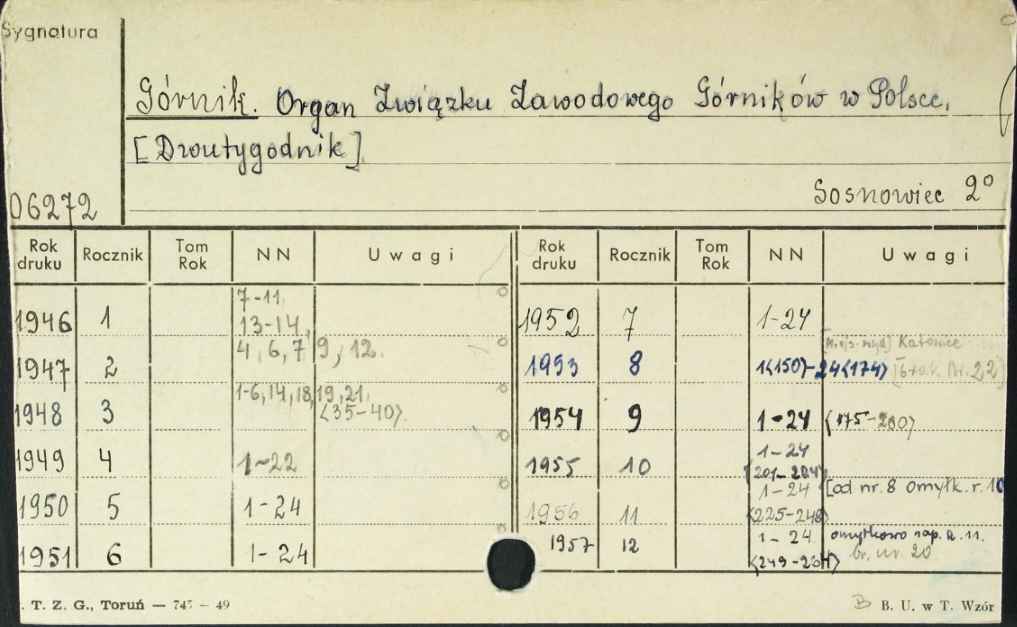 Sygnatura
Górnik. Organ Związku Zawodowego Górników w Polsce.
[Dwutygodnik].
06272
Sosnowiec 2°
Rok druku Rocznik Tom Rok NN Uwagi Rok druku Rocznik Tom Rok NN Uwagi
7-11,
1946 1 13-14, 1952 7 1-24
4, 6, 7, 9, 12. Katowice
1947 2 1953 8 1<150>-24<174> [brak Nr. 22]
1-6, 14, 18, 19, 21.
1948 3 <35-40>. 1954 9 1-24 <175-200>
1-24
1949 4 1-22 1955 10 <201-224>
1-24 [od nr. 8 omyłk. r. 10
1950 5 1-24 1956 11 <225-248>
1957 12 1-24 omyłkowo
1951 6 1-24 <249-264> br. nr. 20
T. Z. G., Toruń — 745 — 49
B B. U. w T. Wzór